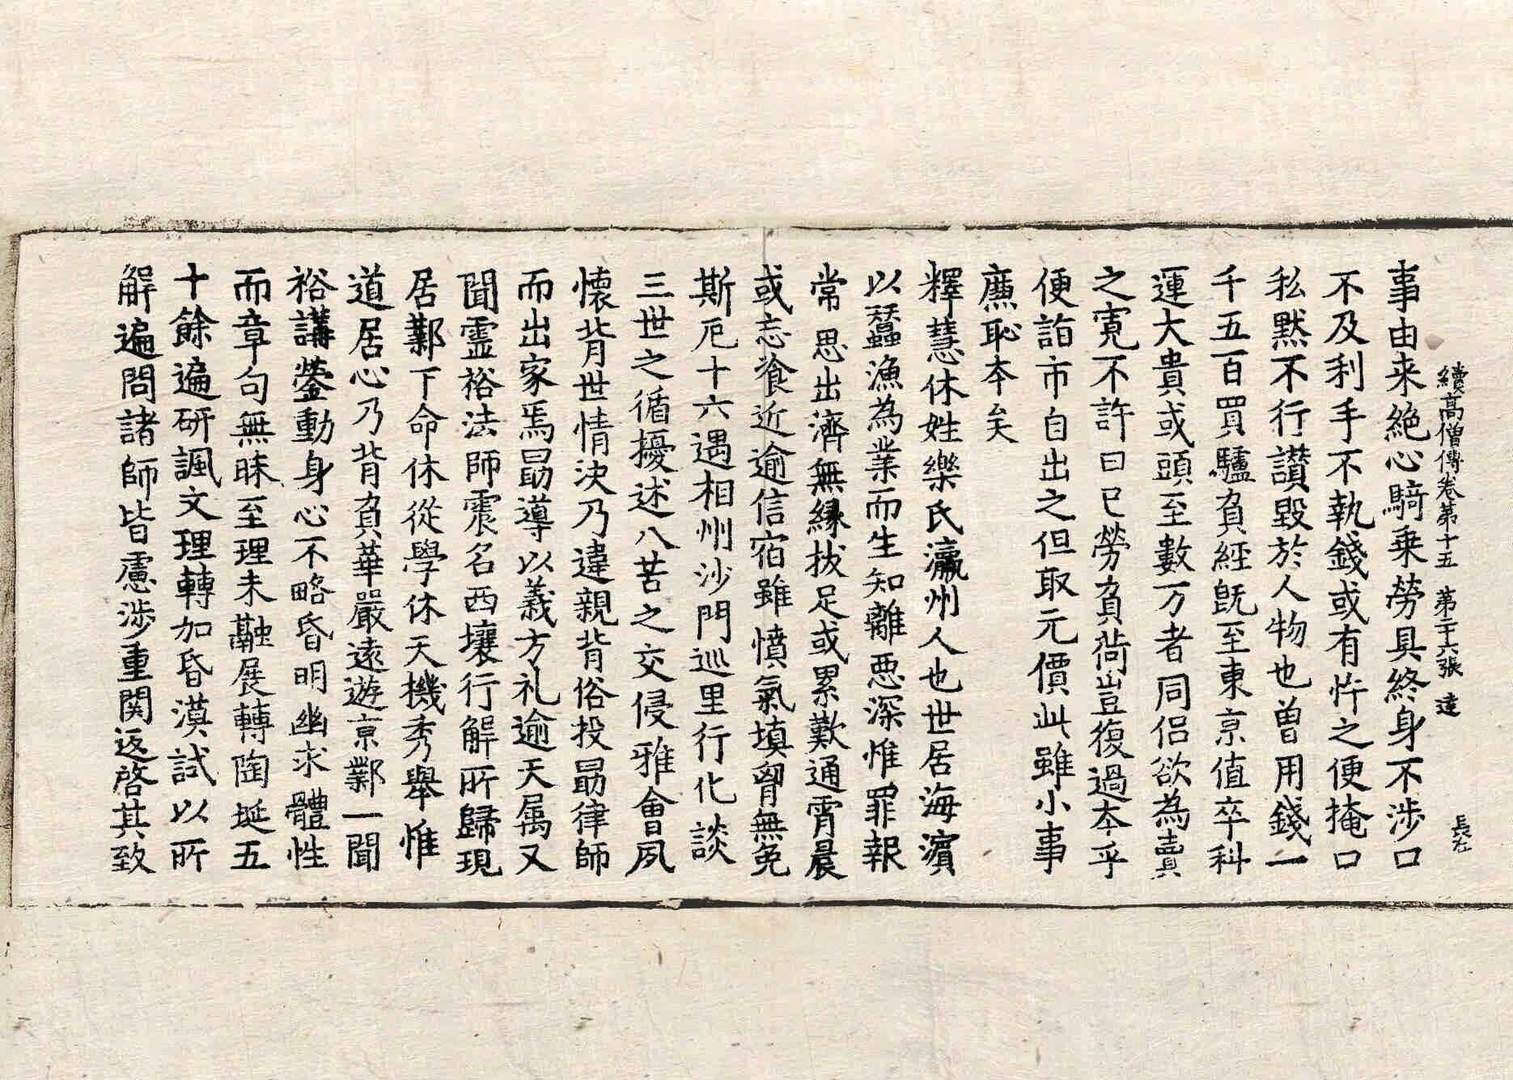 續高僧傳卷第十五 第二十六張 達
長左
事由来絶心騎乗勞具終身不涉口
不及利手不執錢或有忤之便掩口
私默不行讃毀於人物也曾用錢一
千五百買驢負經旣至東京值卒科
運大貴或頭至數万者同侣欲為賣
之寛不許曰已勞負荷豈復過本乎
便詣市自出之但取元價此雖小事
廉恥本矣
釋慧休姓樂氏瀛州人也世居海濱
以蠶漁為業而生知離惡深惟罪報
常思出濟無縁拔足或累歎通霄晨
或忘飡近逾信宿雖憤氣填胷無免
斯厄十六遇相州沙門巡里行化談
三世之循擾述八苦之交侵雅會夙
懐背世情決乃違親背俗投勗律師
而出家焉勗導以義方礼逾天属又
聞靈裕法師震名西壤行解所歸現
居鄴下命休從學休天機秀舉惟
道居心乃背負華嚴遠遊京鄴一聞
裕講鎣動身心不略昏明幽求體性
而章句無昧至理未融展轉陶埏五
十餘遍研諷文理轉加昏漠試以所
解遍問諸師皆慮涉重関返啓其致